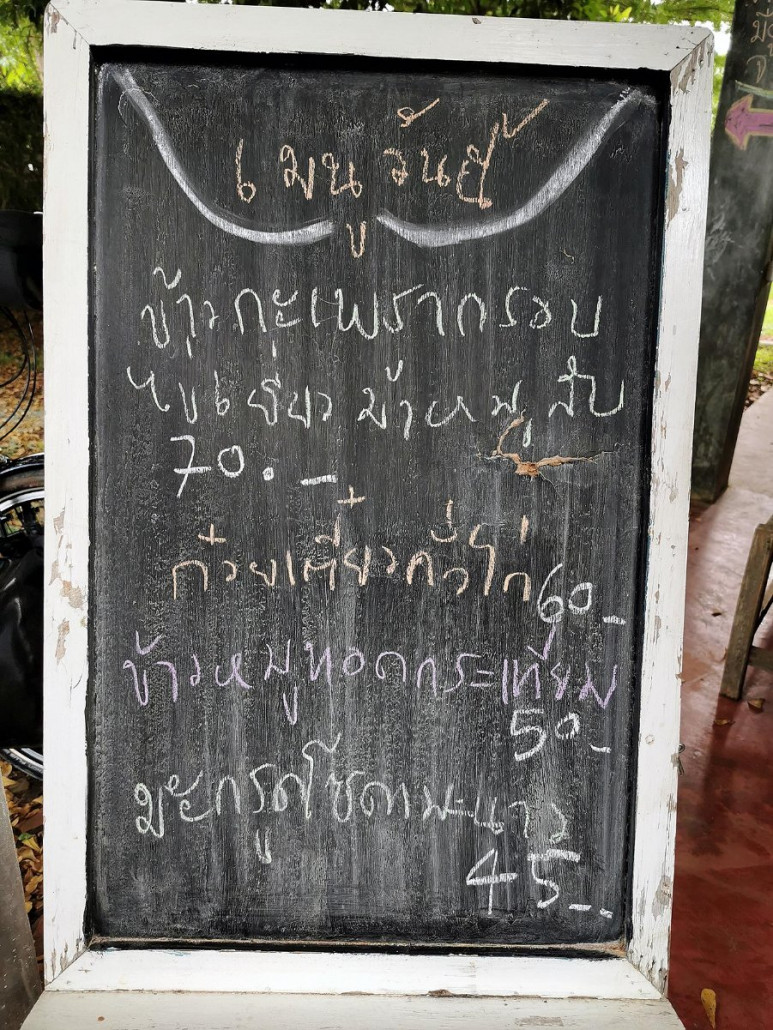 เมนูวันนี้
ข้าวกะเพรากรอบ
ไข่เยี่ยวม้าหมูสับ
70.-
ก๋วยเตี๋ยวคั่วไก่ 60.-
ข้าวหมูทอดกระเทียม
50.-
มะกรูดโซดามะนาว
45.-